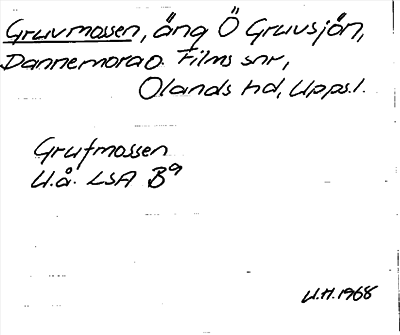 Gruvmossen, äng Ö Gruvsjön,
Dannemora o. Films snr,
Olands hd, Uppsl.
Grufmossen
U.å. LSA B9
U.H. 1968